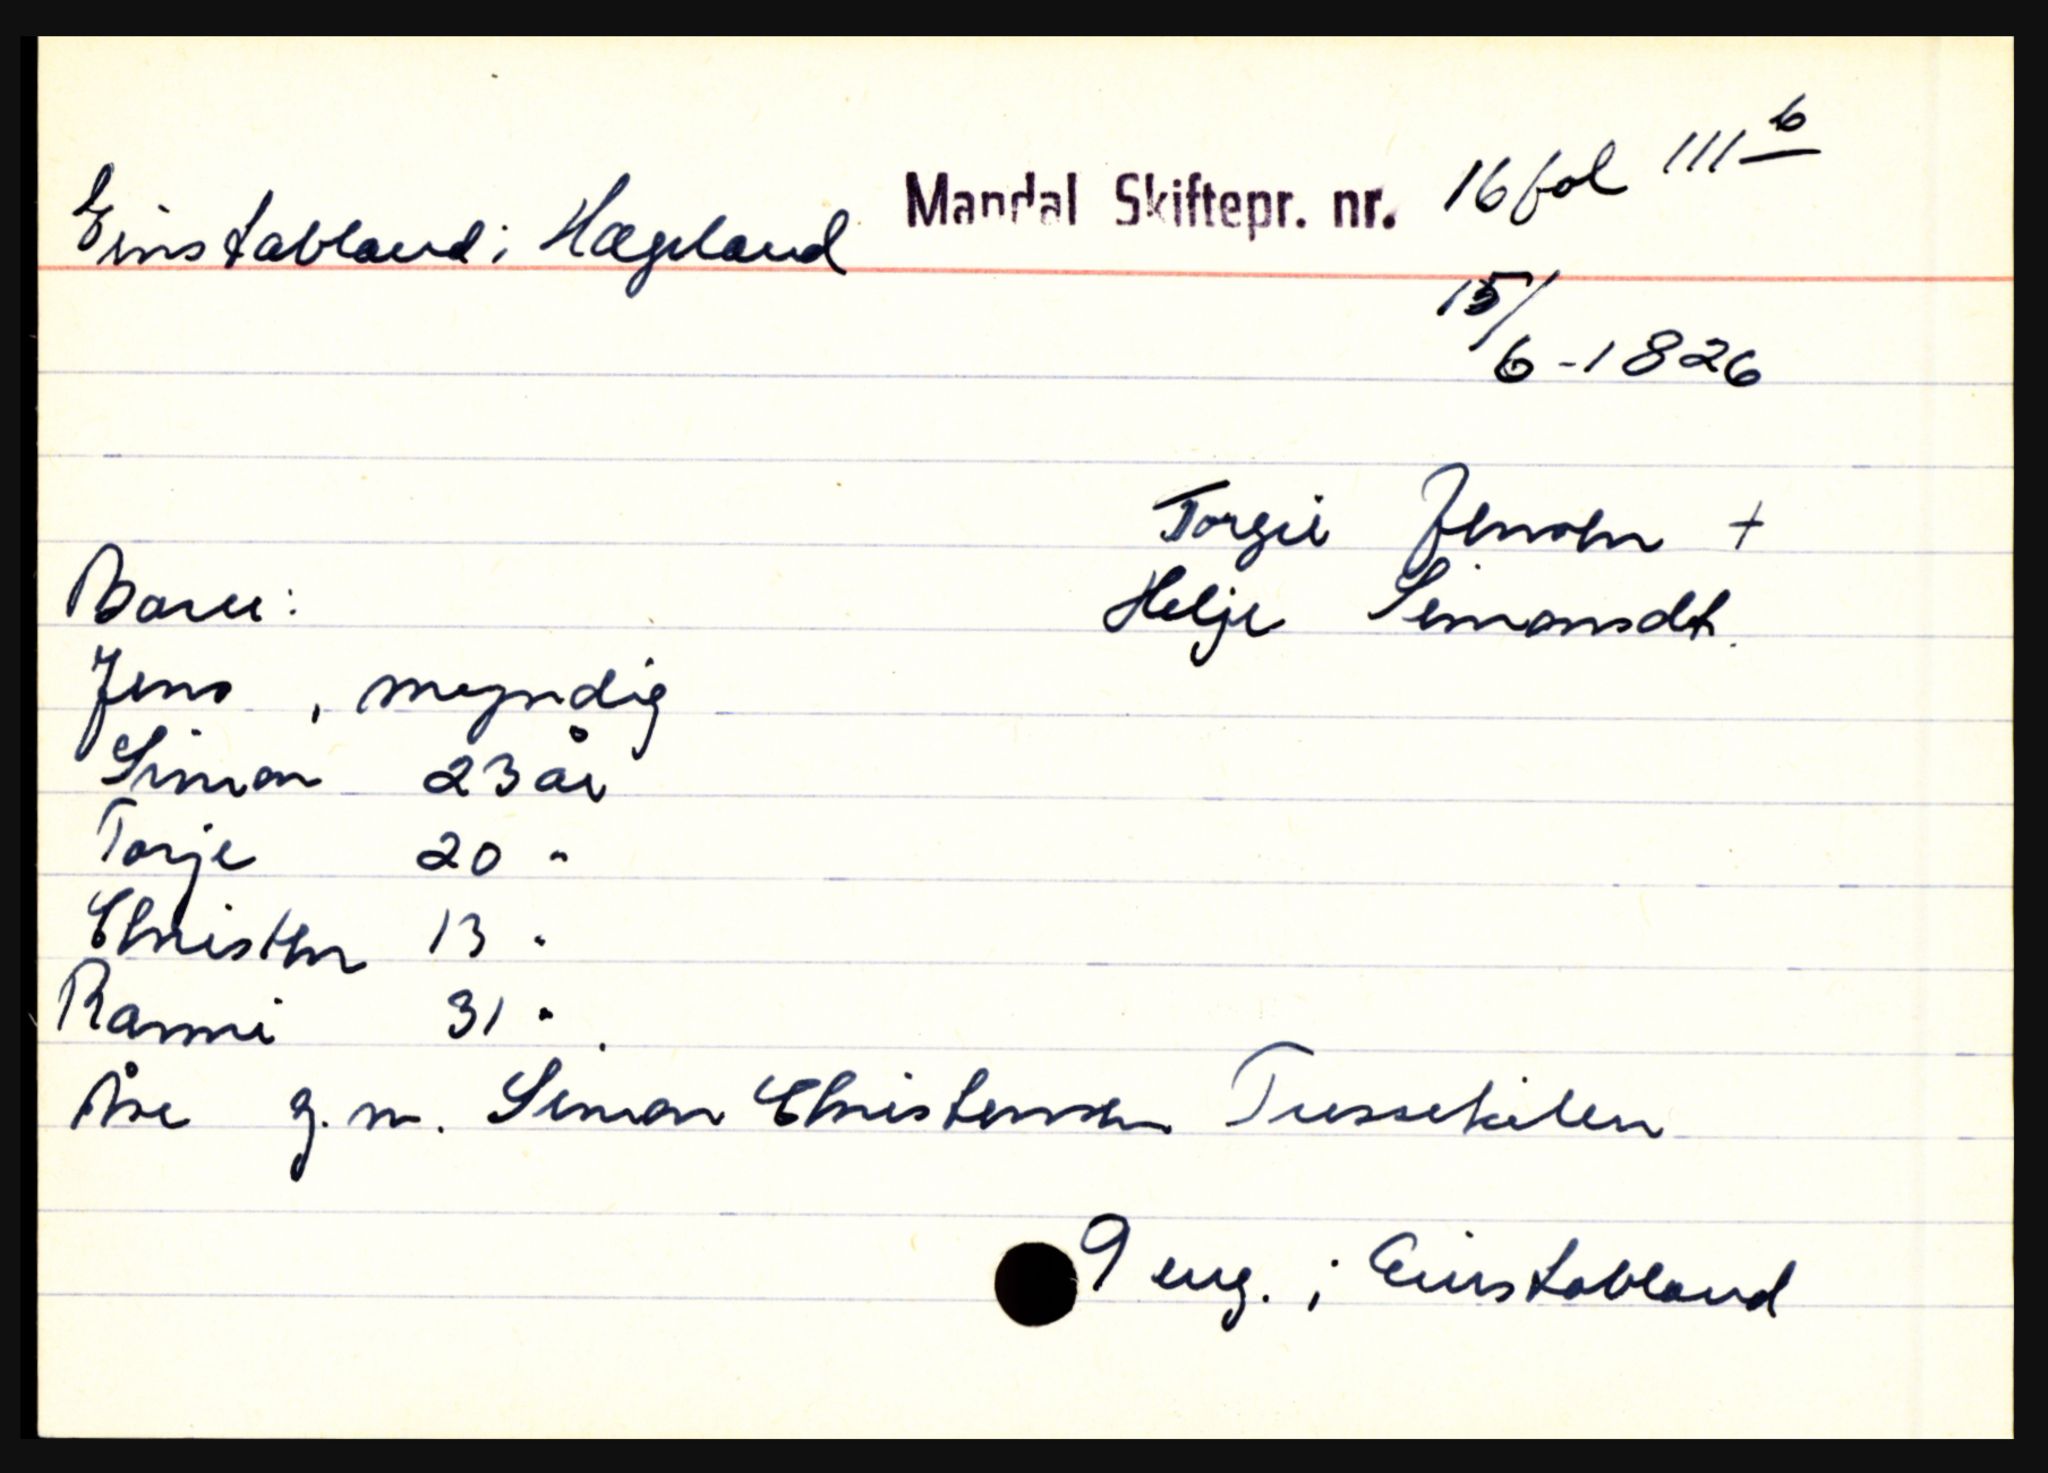 Einstabland i Hægeland Mandal Skiftepr. nr. 16 fol 111 b
15/6-1826
Torgie Jensen +
Helje Simonsdt.
Barn:
Jens , myndig
Simon 23 år
Torje 20 "
Christen 13 "
Ranni 31 "
Åse g. m. Simon Christensen
9 eng. i Einstabland